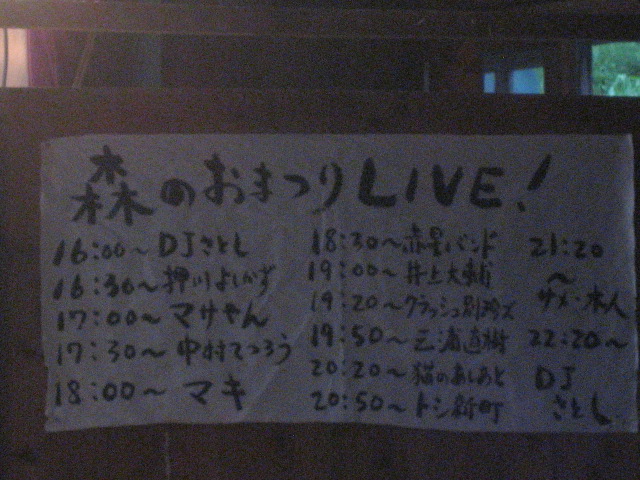 森のおまつりLIVE!
16:00~ DJさとし
16:30~ 押川よしかず
17:00~ マサやん
17:30~ 中村てつろう
18:00~ マキ
18:30~赤星バンド
19:00~ 井上大輔
19:20~クラッシュ別珍ズ
19:50~三浦直樹
20:20~猫のあしあと
20:50~トシ新町
21:20
~
サメ・本人
22:20~
DJ
さとし